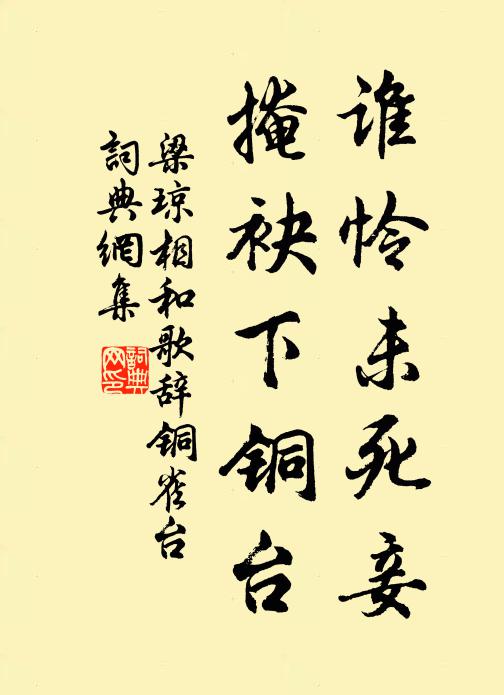 谁怜未死妾
掩袂下铜台
梁琼相和歌辞铜雀台
詞典網集
詞典网印